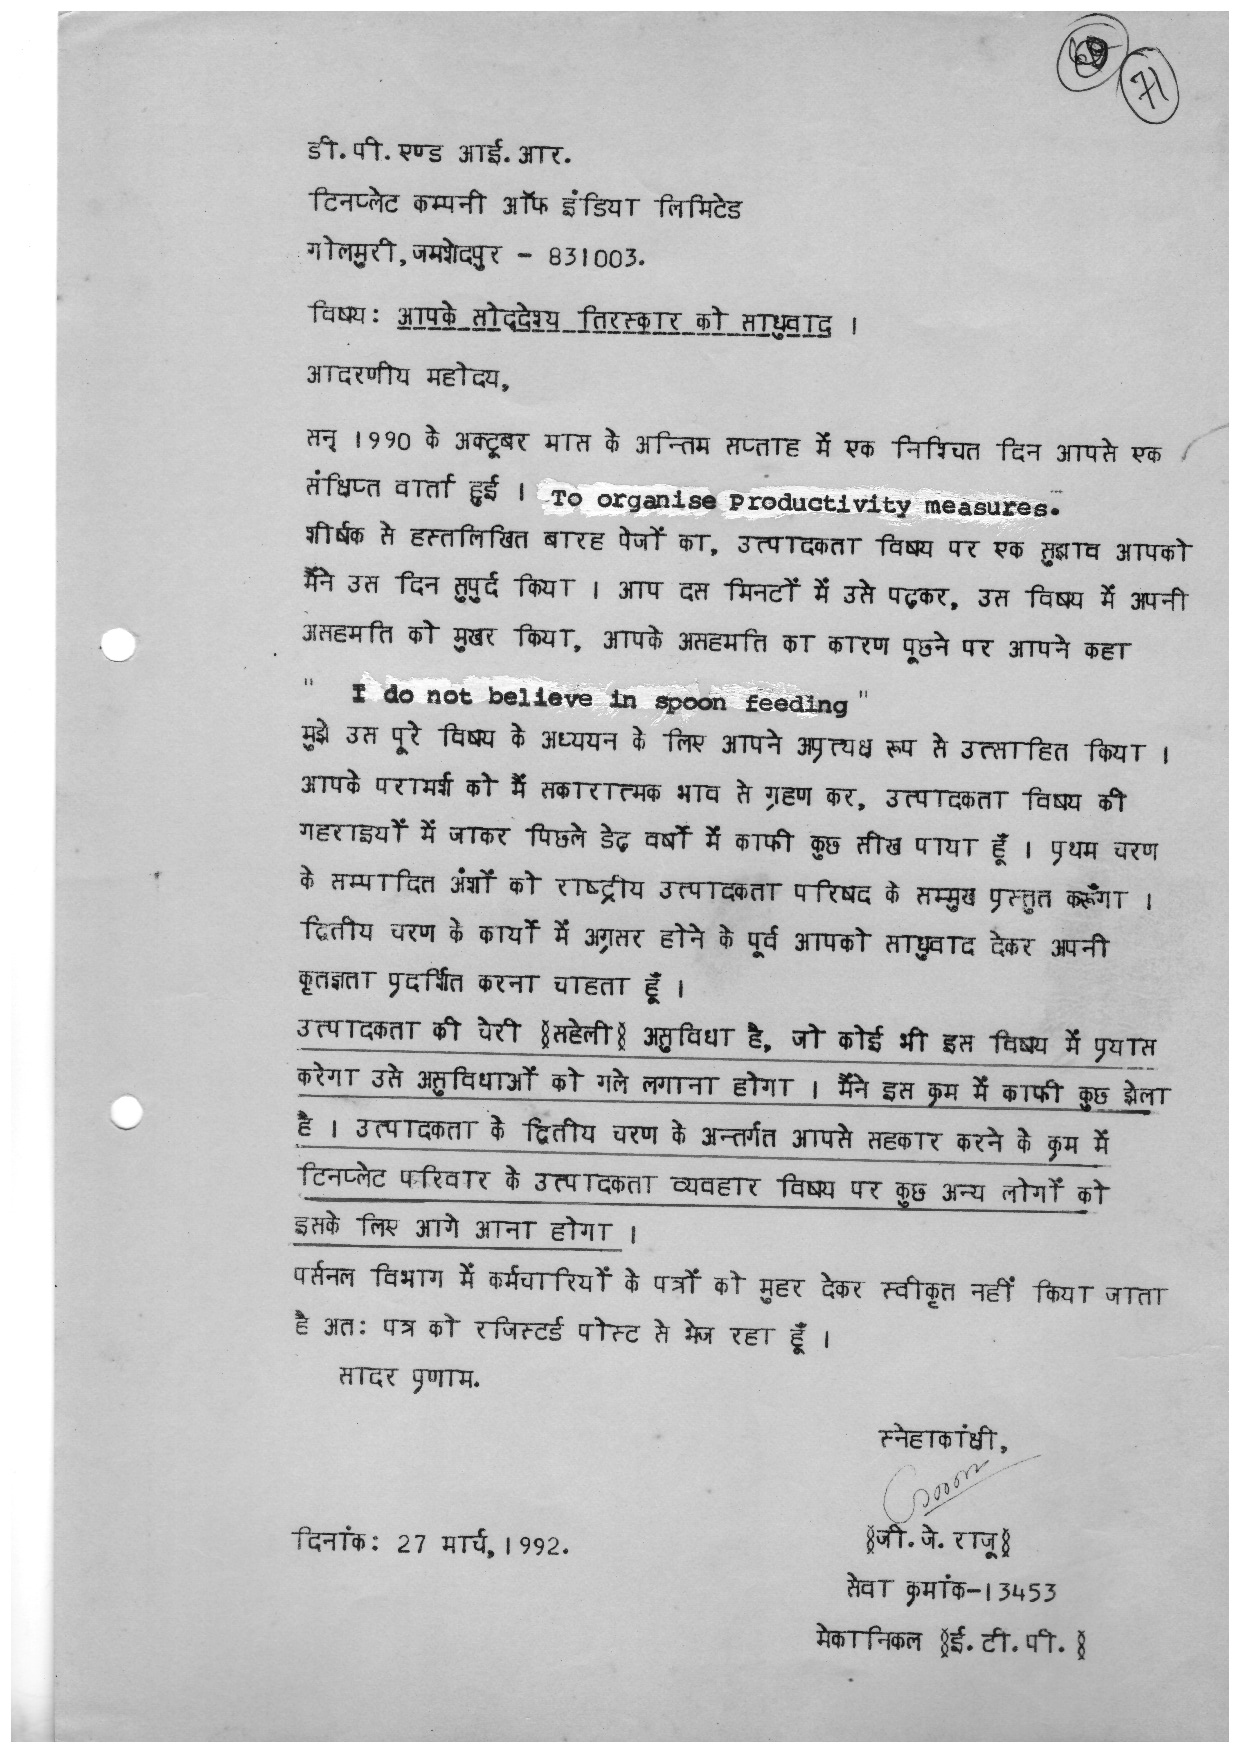 71
डी.पी.एण्ड आई.आर.
टिनप्लेट कम्पनी ऑफ इंडिया लिमिटेड
गोलमुरी,जमशेदपुर - 831003.
विषय: आपके सोद्देश्य तिरस्कार को साधुवाद ।
आदरणीय महोदय,
सन् 1990 के अक्टूबर मास के अन्तिम सप्ताह में एक निश्चित दिन आपसे एक
संक्षिप्त वार्ता हुई । To organise Productivity measures.
शीर्षक से हस्तलिखित बारह पेजों का, उत्पादकता विषय पर एक सुझाव आपको
मैंने उस दिन सुपुर्द किया । आप दस मिनटों में उसे पढ़कर, उस विषय में अपनी
असहमति को मुखर किया, आपके असहमति का कारण पूछने पर आपने कहा
" I do not believe in spoon feeding "
मुझे उस पूरे विषय के अध्ययन के लिए आपने अप्रत्यक्ष रूप से उत्साहित किया ।
आपके परामर्श को मैं सकारात्मक भाव से ग्रहण कर, उत्पादकता विषय की
गहराइयों में जाकर पिछले डेढ़ वर्षों में काफी कुछ सीख पाया हूँ । प्रथम चरण
के सम्पादित अंशों को राष्ट्रीय उत्पादकता परिषद के सम्मुख प्रस्तुत करूँगा ।
द्वितीय चरण के कार्यों में अग्रसर होने के पूर्व आपको साधुवाद देकर अपनी
कृतज्ञता प्रदर्शित करना चाहता हूँ ।
उत्पादकता की चेरी (सहेली) असुविधा है, जो कोई भी इस विषय में प्रयास
करेगा उसे असुविधाओं को गले लगाना होगा । मैंने इस क्रम में काफी कुछ झेला
है । उत्पादकता के द्वितीय चरण के अन्तर्गत आपसे सहकार करने के क्रम में
टिनप्लेट परिवार के उत्पादकता व्यवहार विषय पर कुछ अन्य लोगों को
इसके लिए आगे आना होगा ।
पर्सनल विभाग में कर्मचारियों के पत्रों को मुहर देकर स्वीकृत नहीं किया जाता
है अतः पत्र को रजिस्टर्ड पोस्ट से भेज रहा हूँ ।
सादर प्रणाम.
स्नेहाकांक्षी,
दिनांक: 27 मार्च,1992.
(जी.जे.राजू)
सेवा क्रमांक-13453
मेकानिकल (ई.टी.पी.)